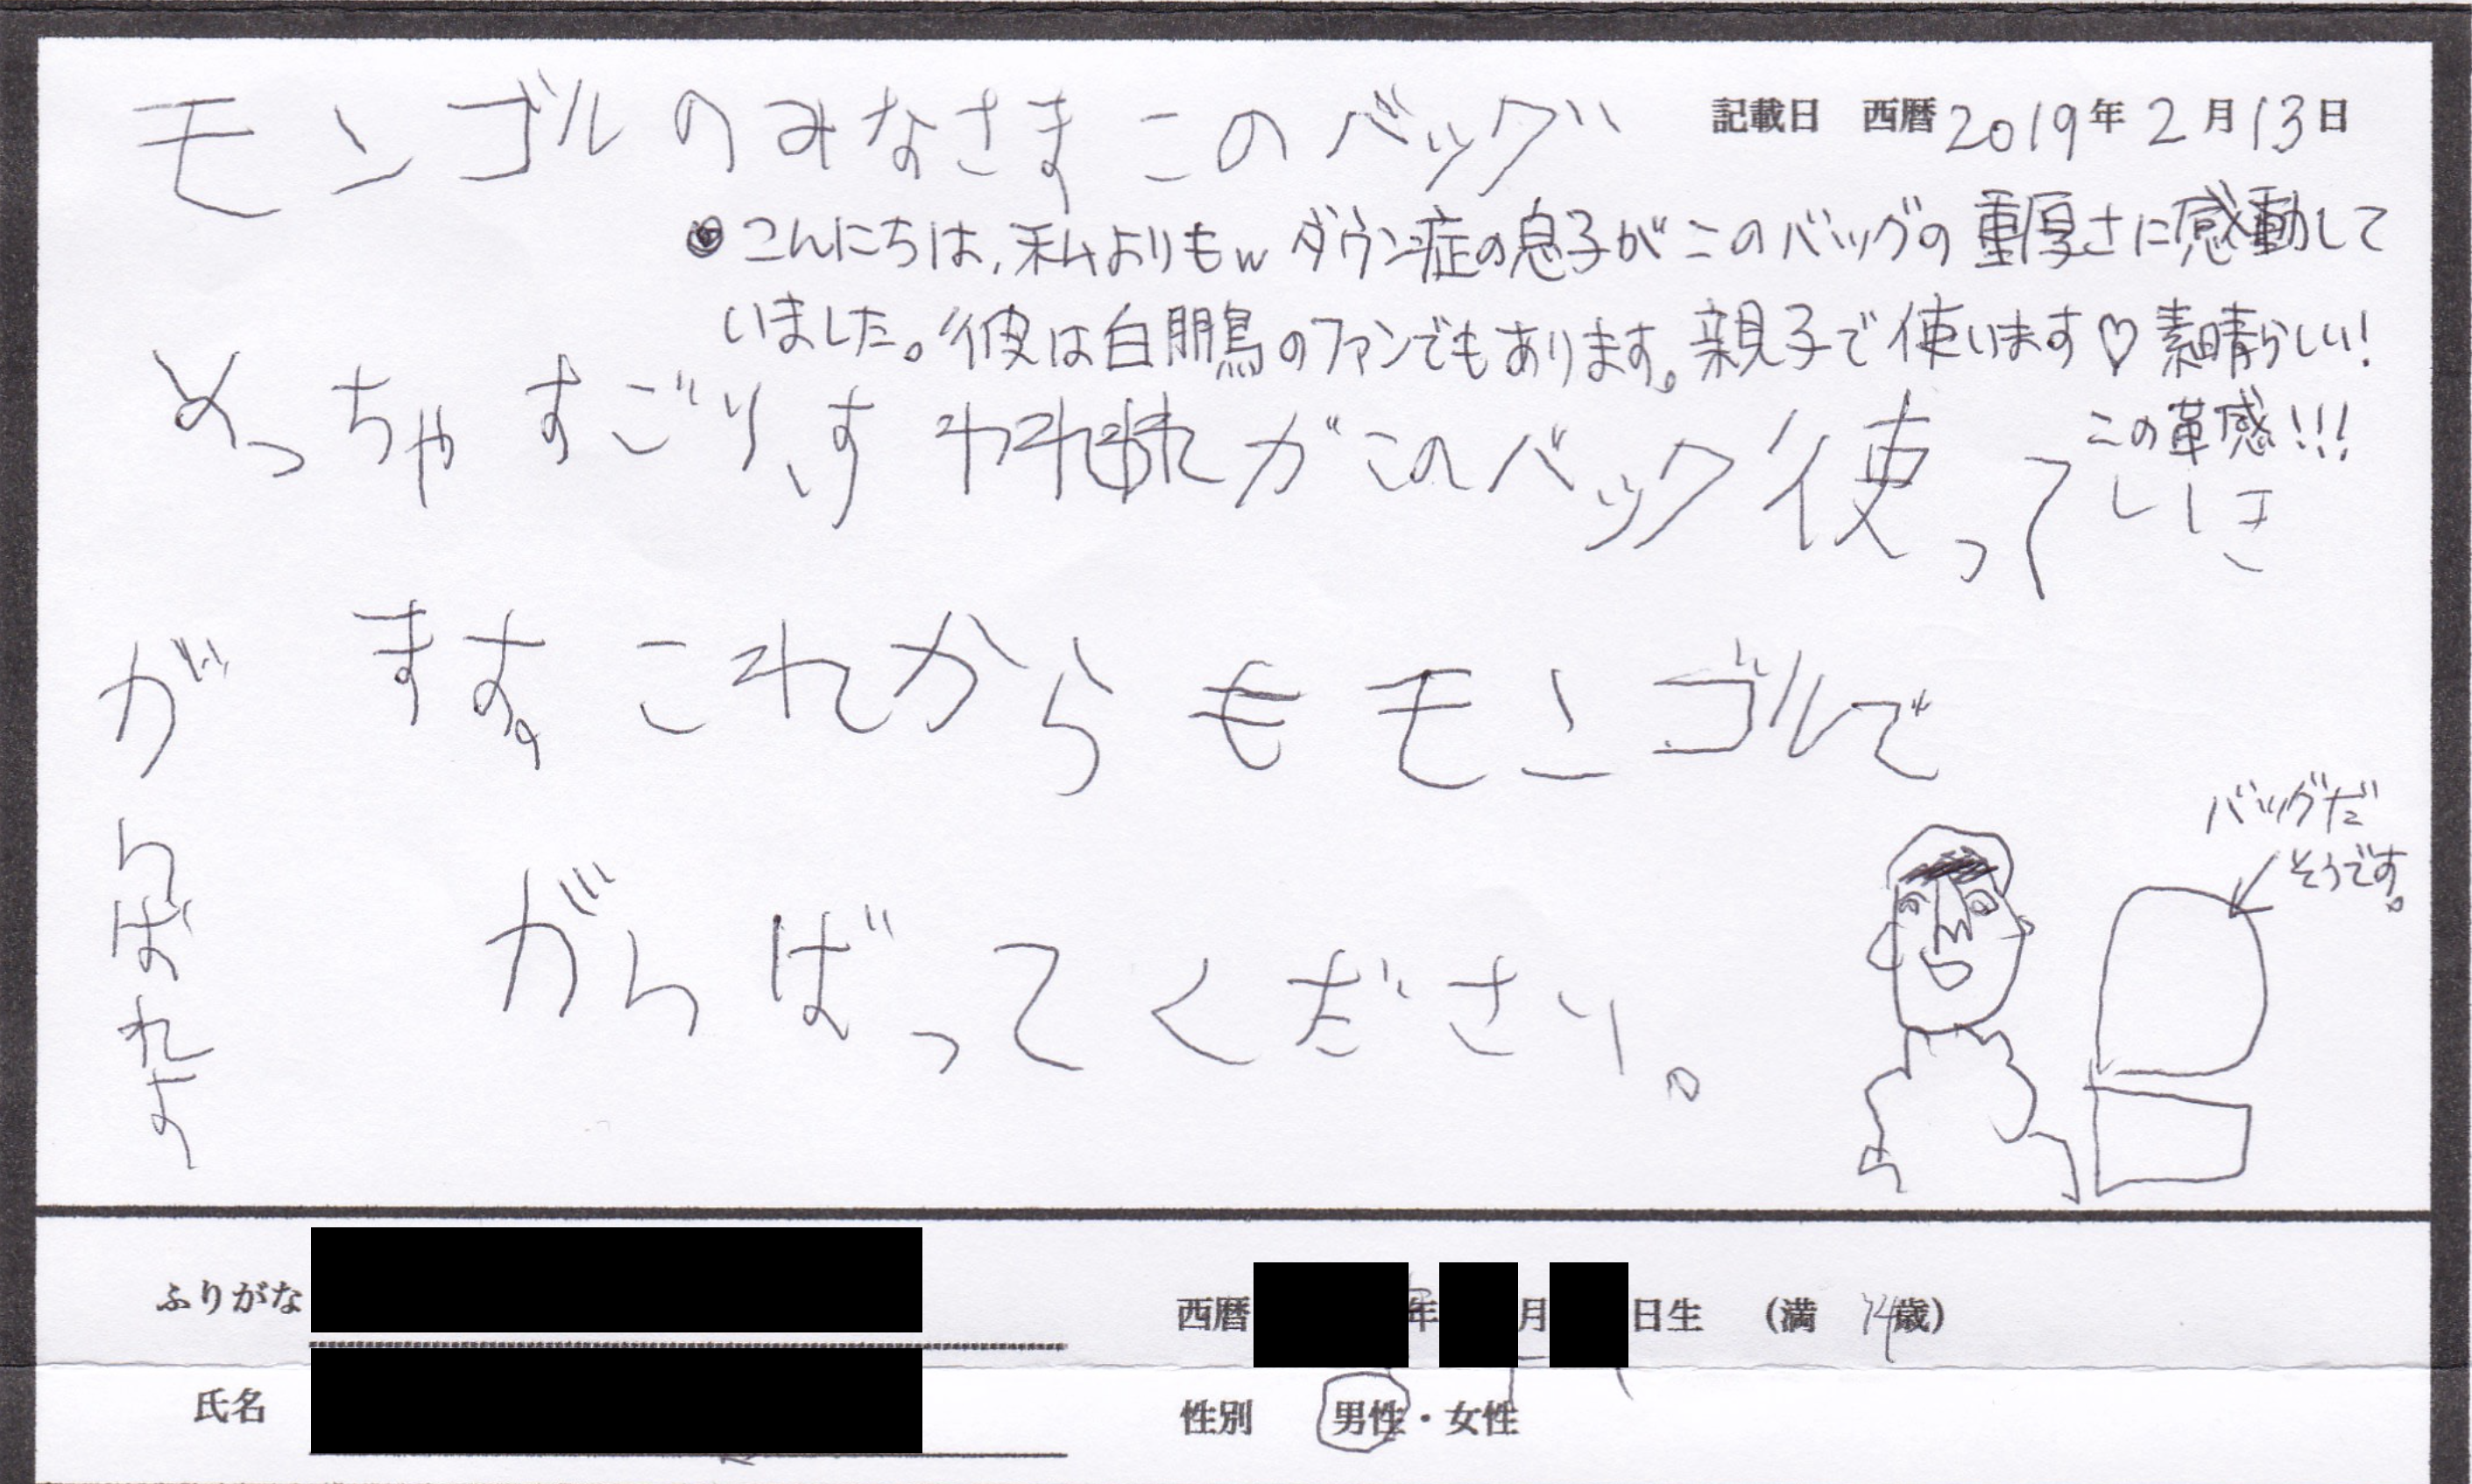 モンゴルのみなさまこのバッグ
記載日 西暦2019年2月13日
◎こんにちは、私よりもwダウン症の息子がこのバッグの重厚さに感動して
いました。彼は白鵬のファンでもあります。親子で使います♡素晴らしい!
この革感!!!
めっちゃすごいすがこのバック使っていき
ます。これからもモンゴルで
がんばってください。
がんばれよ
バッグだ
そうです。
ふりがな
西暦 年 月 日生 (満 14歳)
氏名
性別 男性・女性